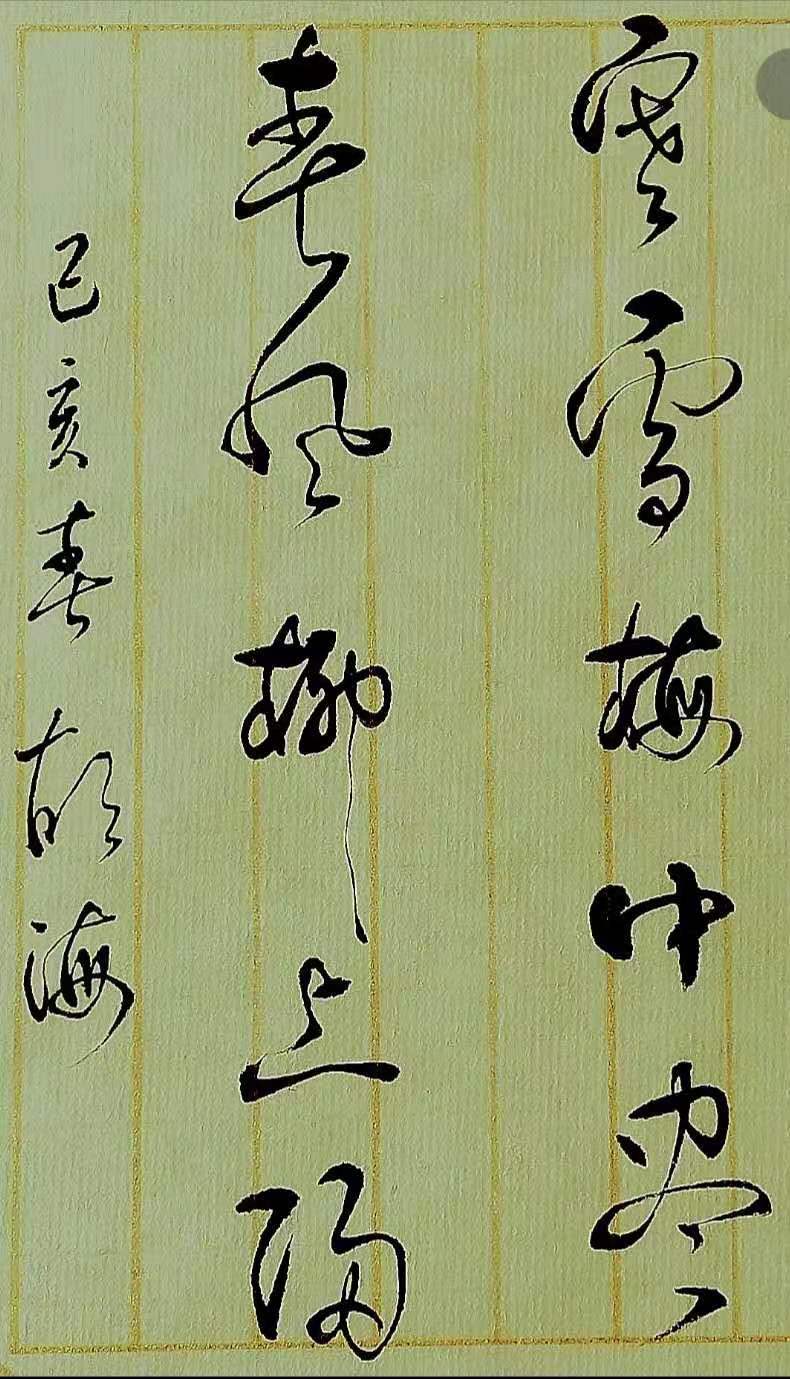 寒雪梅中尽
春风柳上归
己亥春 胡海